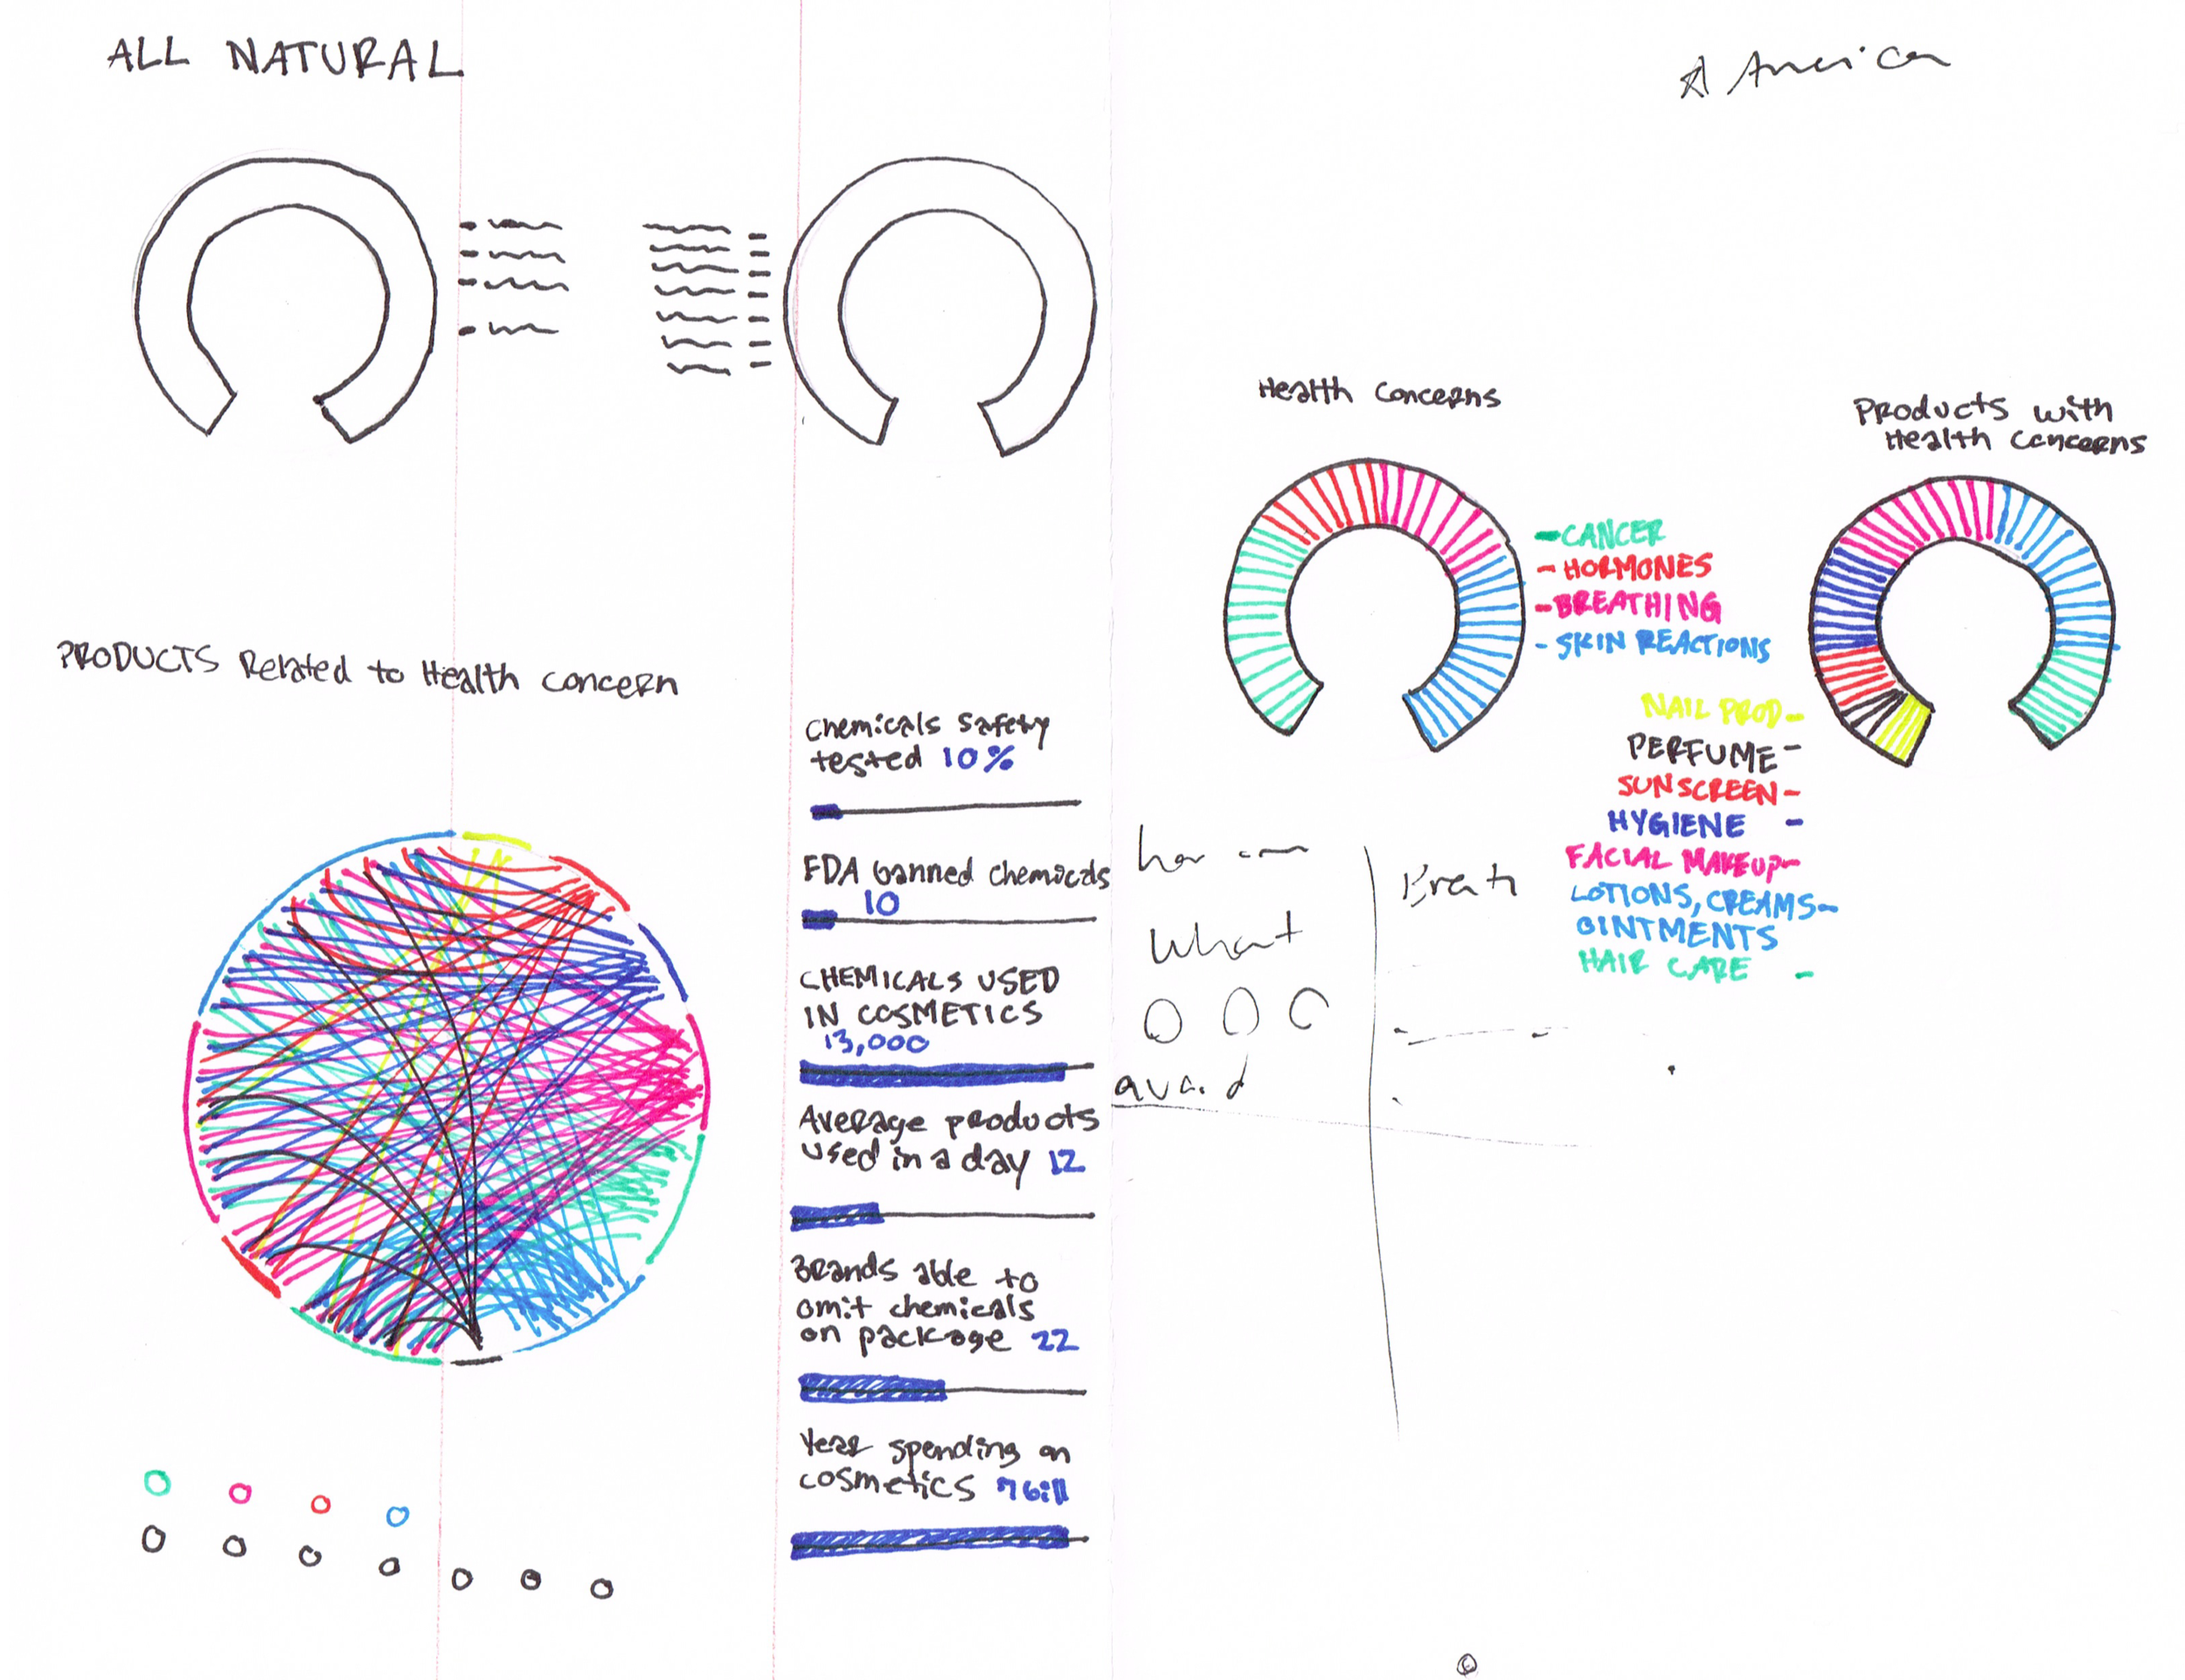 ALL NATURAL
American
PRODUCTS Related to Health concern
Chemicals Safety
tested 10%
FDA banned chemicals
10
CHEMICALS USED
IN COSMETICS
13,000
Average products
used in a day 12
Brands able to
omit chemicals
on package 22
Year spending on
cosmetics 7 bill
What
avoid
Breath
Health Concerns
-CANCER
-HORMONES
-BREATHING
-SKIN REACTIONS
Products with
Health Concerns
NAIL PROD-
PERFUME-
SUNSCREEN-
HYGIENE -
FACIAL MAKEUP-
LOTIONS, CREAMS-
OINTMENTS
HAIR CARE -